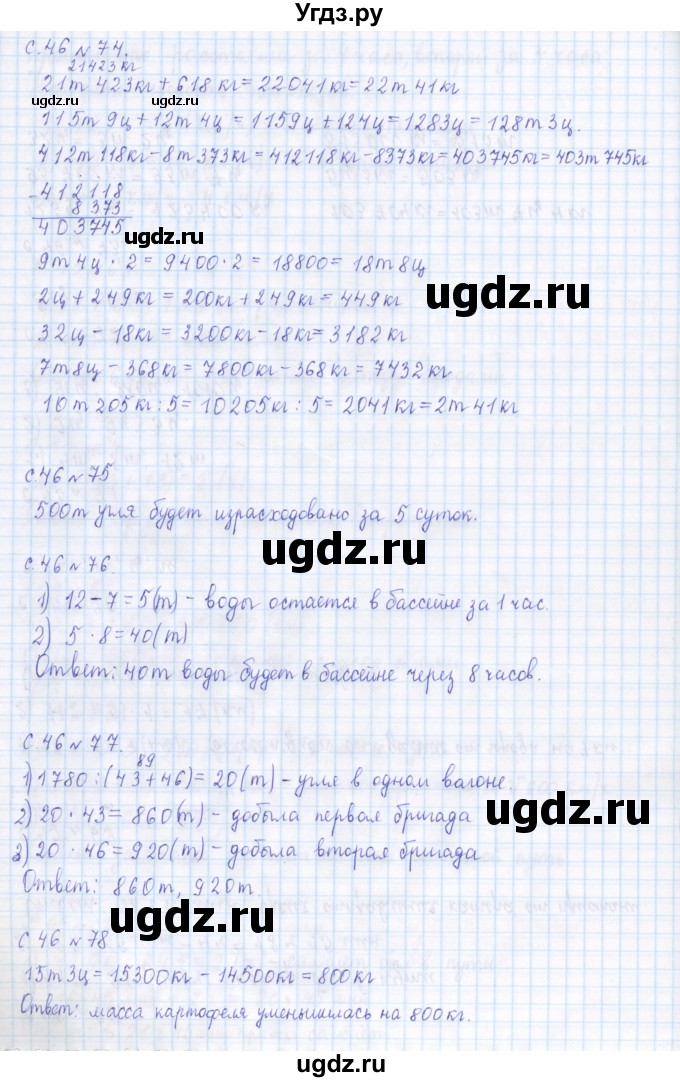 Угдз.ру
с.46 №74.
21423кг
21т 423кг + 618 кг = 22041кг = 22т 41кг
115т 9ц + 12т 4ц = 1159ц + 124ц = 1283ц = 128т 3ц.
412т 118кг - 8т 373кг = 412118кг - 8373кг = 403745кг = 403т 745кг
- 412118
8373
403745
9т 4ц · 2 = 9400 · 2 = 18800 = 18т 8ц
2ц + 249кг = 200кг + 249кг = 449кг
32ц - 18кг = 3200кг - 18кг = 3182кг
7т 8ц - 368кг = 7800кг - 368кг = 7432кг
10т 205кг : 5 = 10205кг : 5 = 2041кг = 2т 41кг
с.46 №75
500т угля будет израсходовано за 5 суток.
с.46 №76.
1) 12 - 7 = 5(т) - воды остается в бассейне за 1 час.
2) 5 · 8 = 40(т)
Ответ: 40т воды будет в бассейне через 8 часов.
с.46 №77.
89
1) 1780 : (43 + 46) = 20(т) - угля в одном вагоне.
2) 20 · 43 = 860(т) - добыла первая бригада
3) 20 · 46 = 920(т) - добыла вторая бригада
Ответ: 860т, 920т
с.46 №78
15т 3ц = 15300кг - 14500кг = 800кг
Ответ: масса картофеля уменьшилась на 800кг.
ugdz.ru
ugdz.ru
ugdz.ru
ugdz.ru
ugdz.ru
ugdz.ru
ugdz.ru
ugdz.ru